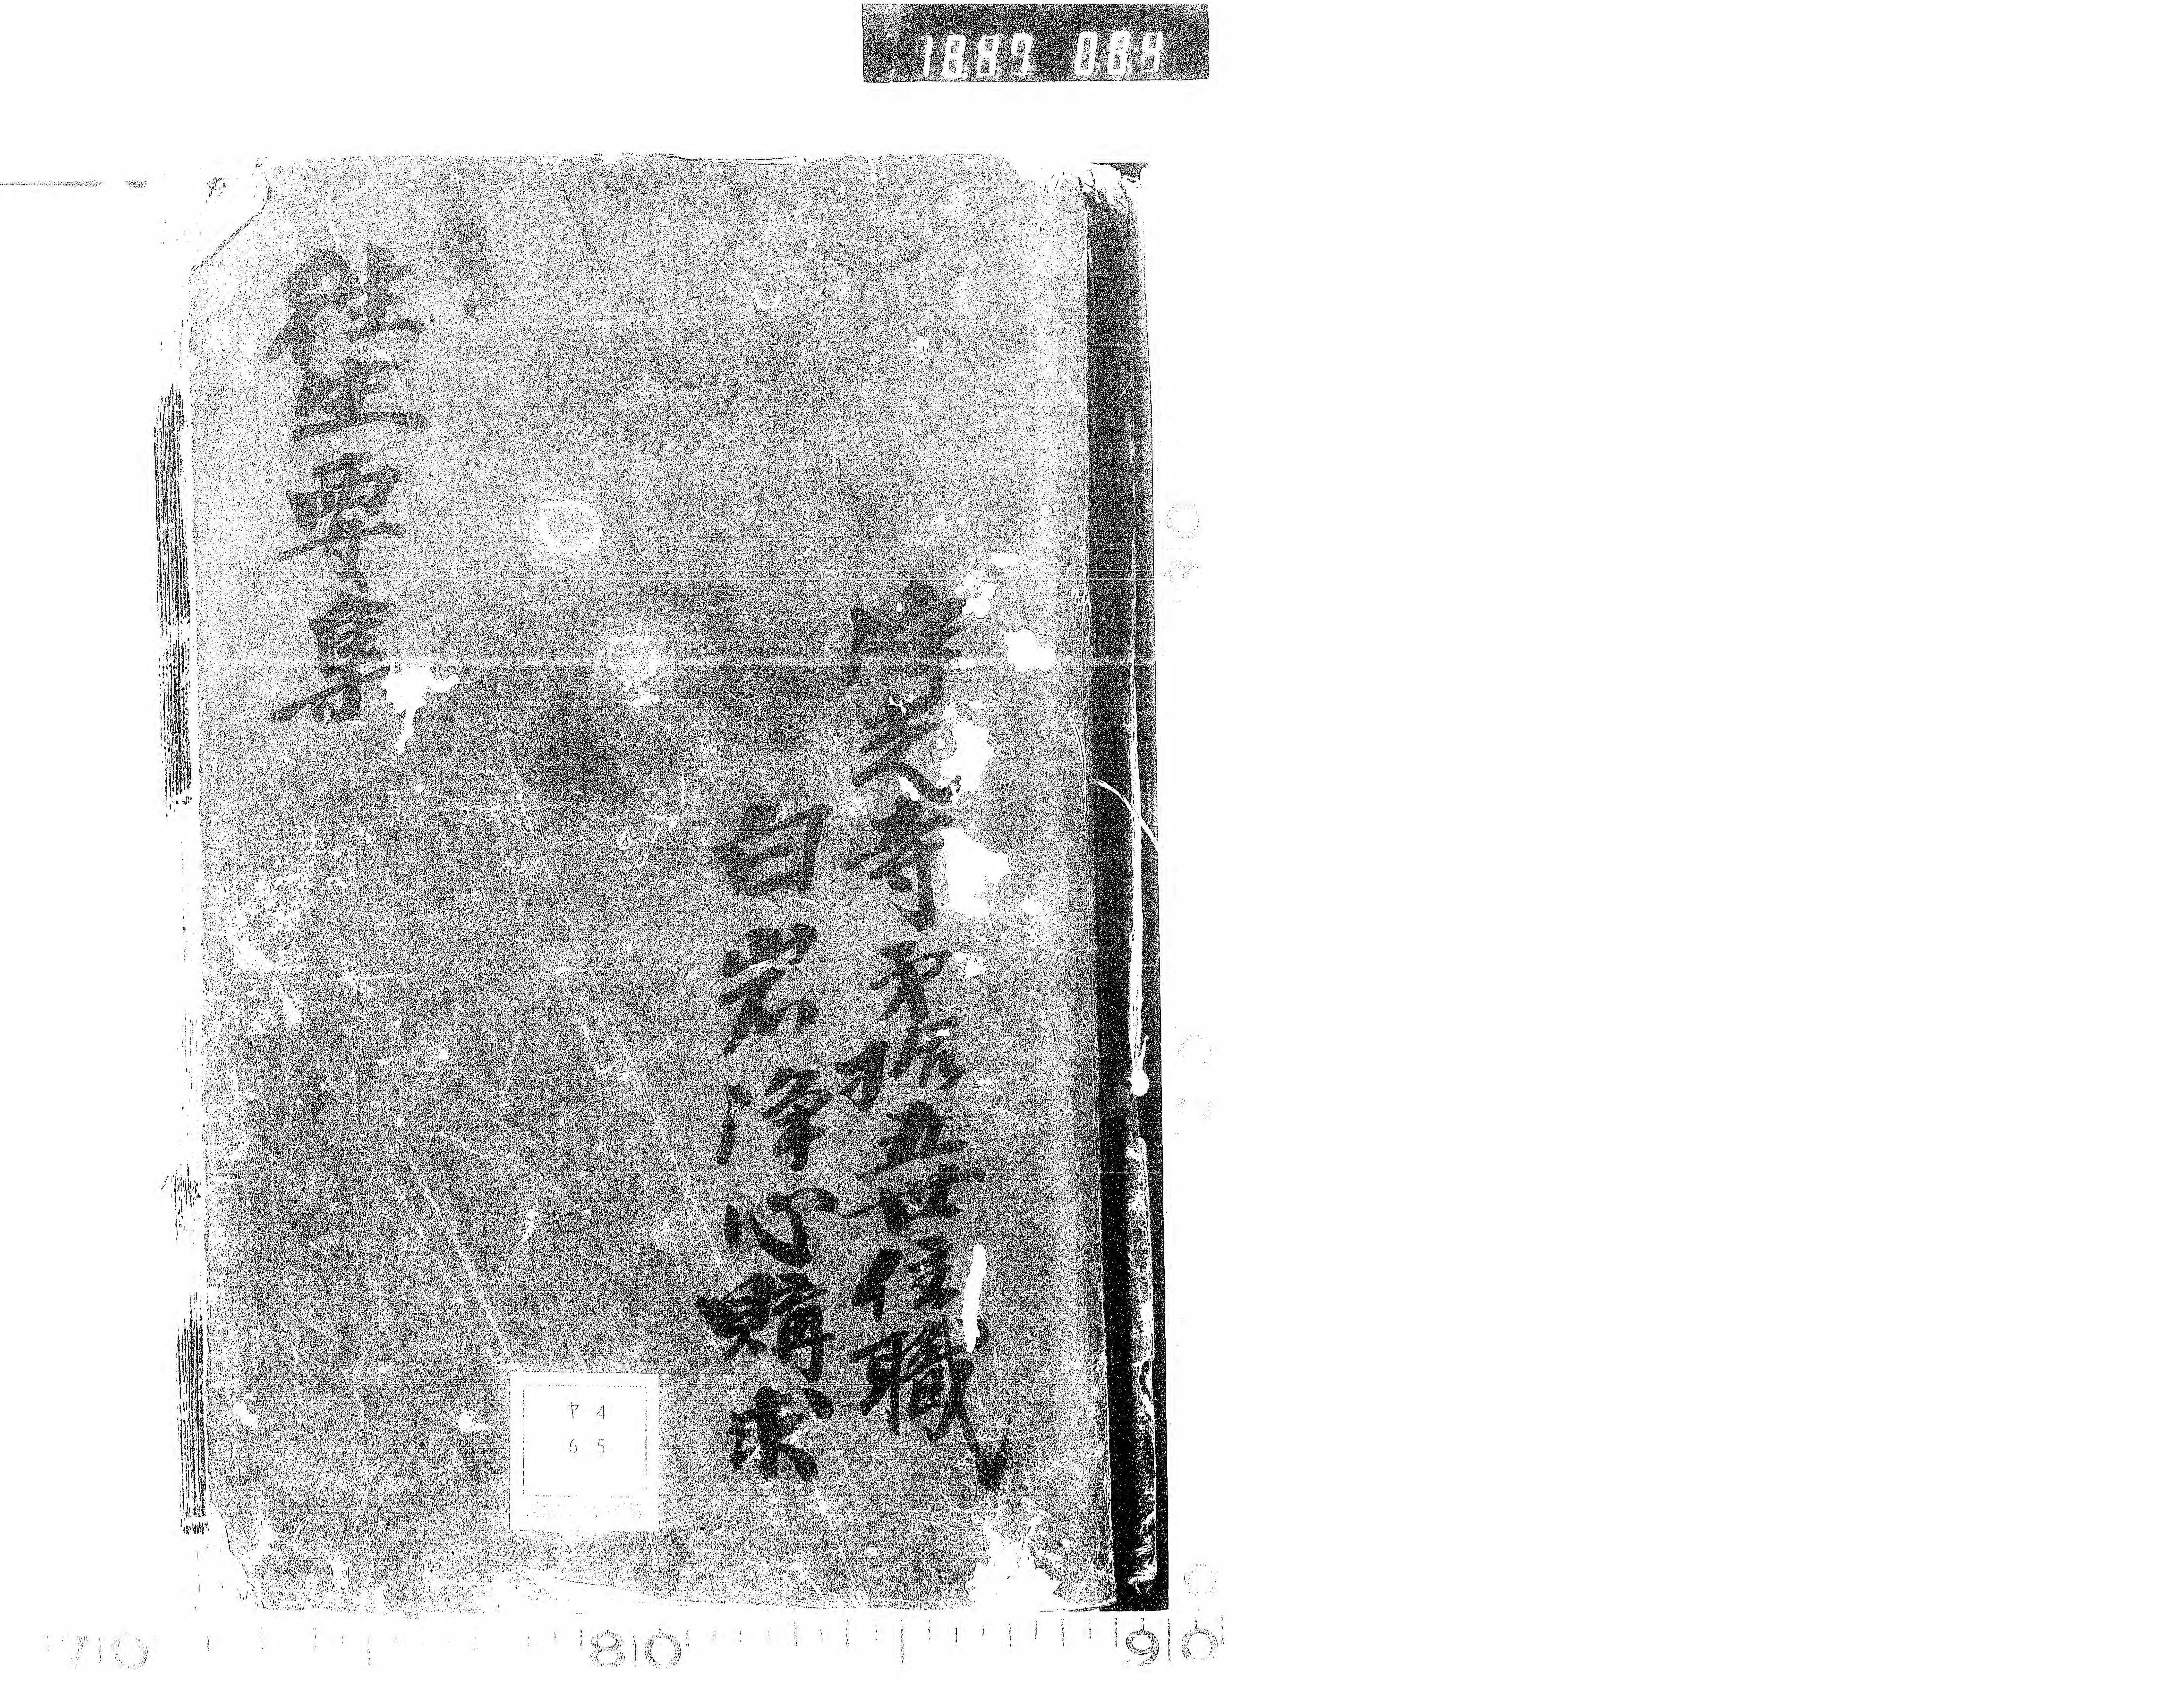 往生要集
光寺第拾五世住職
白岩浄心購求
ヤ4
65
1887 084
70 80 90